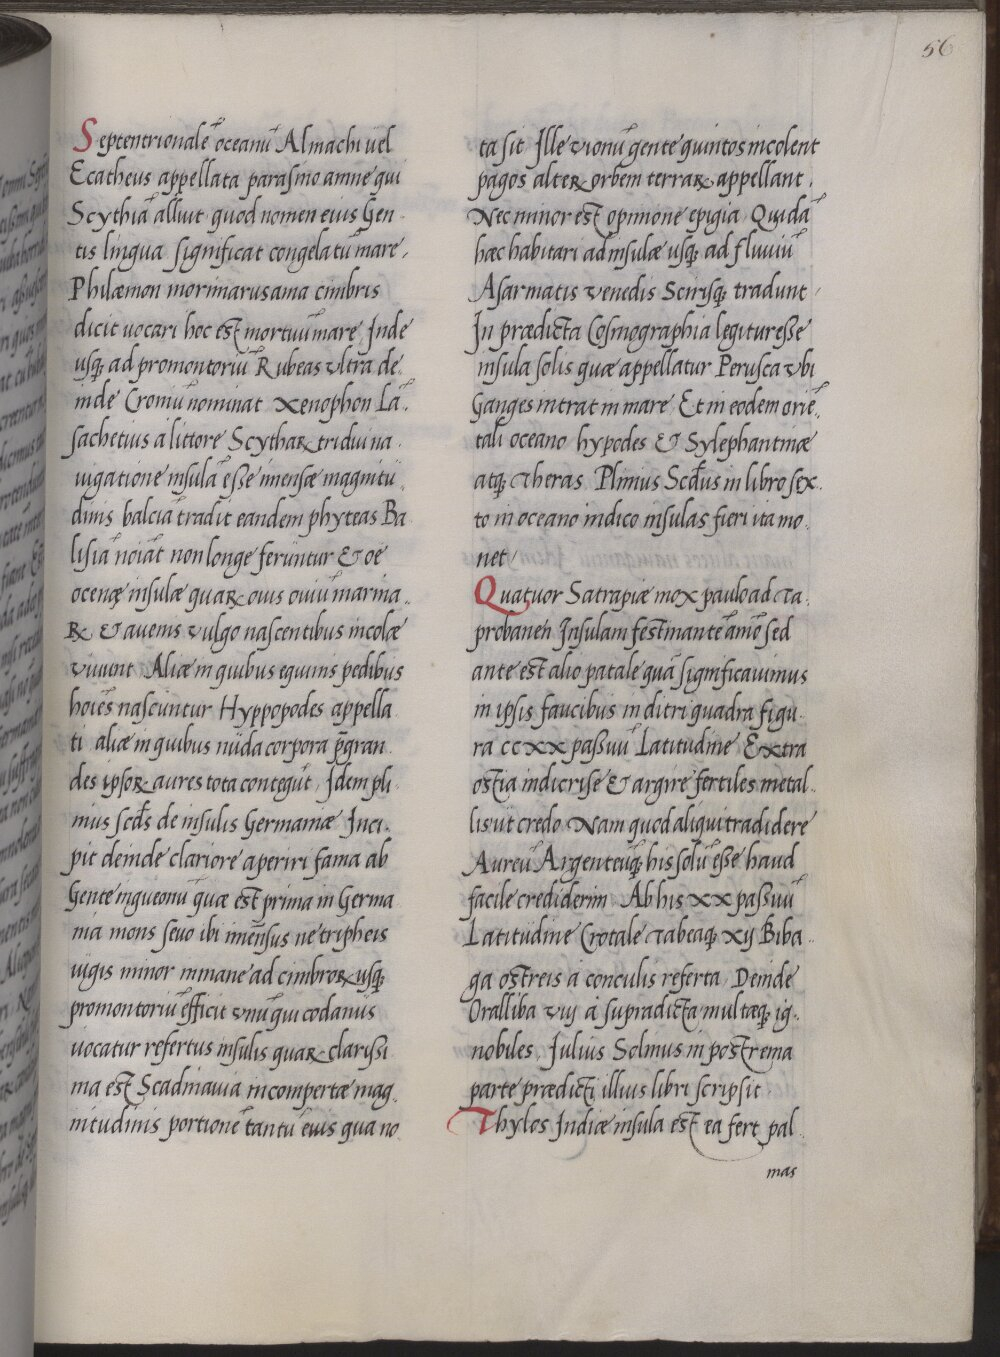 56
Septentrionalē oceanū Almachi uel
Ecatheus appellata parasino amne qui
Scythiā alluit quod nomen eius Gen
tis lingua significat congelatū mare,
Philæmon morimarusama cimbris
dicit uocari hoc est mortuū mare Inde
usq; ad promontoriū Rubeas vltra de
inde Cromiū nominat Xenophon Lā.
sachetius a littore Scythaꝝ tridui na
uigatione insulā esse imensæ magnitu
dinis balciā tradit eandem phyteas Ba
lisiā noiāt non longe feruntur & oe
oceneæ insulæ quaꝝ ouis ouiū marina
ꝝ & auenis vulgo nascentibus incolæ
viuunt Aliæ in quibus equinis pedibus
hoīes nascuntur Hyppopodes appella
ti aliæ in quibus nuda corpora p̄gran
des ipsoꝝ aures tota contegūt, Idem pli
nius scd̄s de insulis Germaniæ Inci.
pit deinde clariore aperiri fama ab
Gente ingueonū quæ est prima in Germa
nia mons seuo ibi imēnsus ne tripheis
uigis minor inmane ad cimbroꝝ usq;
promontoriū efficit vnū qui codanus
uocatur refertus insulis quaꝝ clarissi
ma est Scadinauia incompertæ mag.
nitudinis portionē tantū euis qua no
ta sit Ille vionū gente quintos incolent
pagos alteꝝ orbem terraꝝ appellant,
Nec minor est opinione epigia Quidā
hæc habitari ad insulæ usq; ad fluuiū
Asarmatis venedis Scirisq; tradunt
In prædicta Cosmographia legitur esse
insula solis quæ appellatur Perusca vbi
Ganges intrat in mare Et in eodem oriē
tali oceano hypodes & Sylephantinæ
atq; Theras Plinius Scd̄us in libro sex
to in oceano indico insulas fieri ita mo
net/
Quatuor Satrapiæ mox paulo ad Ta
probanen Insulam festinante amo sed
ante est alio patale quā significauimus
in ipsis faucibus in ditri quadra figu
ra ccxx passuū Latitudine Extra
ostia indicrise & argire fertiles metal
lis ut credo Nam quod aliqui tradidere
Aureū Argenteuq; his solū esse haud
facile crediderim Ab his xx passuū
Latitudine Crotale Tabeaq; xij Biba
ga ostreis a conculis referta Deinde
Oralliba viij a supradicta multæq; ig.
nobiles, Iulius Solinus in postrema
parte prædicti illius libri scripsit
Thylos Indiæ insula est ea fert pal
mas